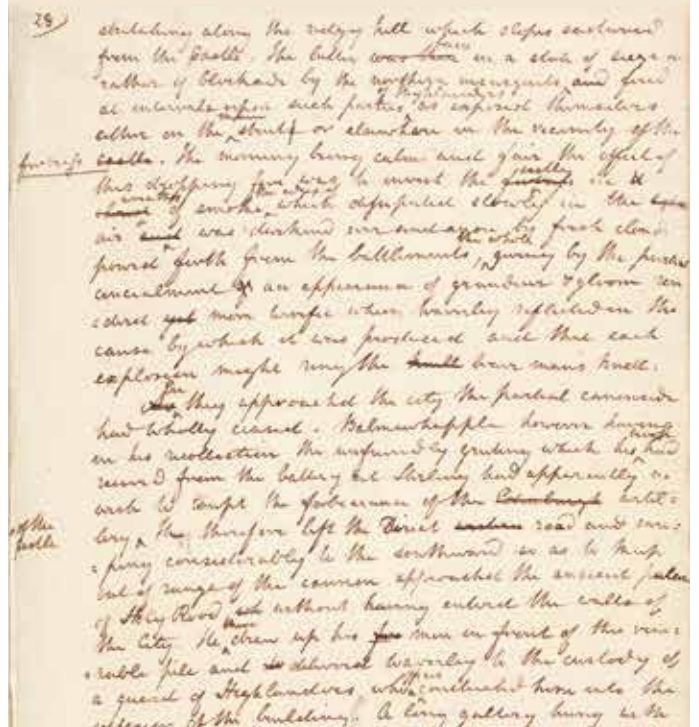 28
stretching along the ridgy hill which slopes eastward
from the Castle. The latter was in a state of siege or
rather of blockade by the northern insurgents and fired
of Highlanders
at intervals upon such parties as exposed themselves
either on the street or elsewhere in the vicinity of the
fortress castle. The morning being calm and fair the effect of
this dropping fire was to invest the castle in
wreaths of smoke the edges of which dissipated slowly in the
air was darkend ever and anon by fresh clou
the whole
pourd forth from the battlements, giving by the partial
concealment an appearance of grandeur & gloom ren
=derd yet more terrific when Waverley reflected on the
cause by which it was produced and that each
explosion might ring the knell brave mans knell.
Ere they approached the city the partial cannonade
had wholly ceased. Balmawhapple however having
troop
in his recollection the unfriendly greeting which his had
received from the battery at Stirling had apparently no
wish to tempt the forbearance of the Edinburgh artil=
of the castle
lery He therefore left the Direct road and swee=
=ping considerably to the southward so as to keep
out of range of the cannon approached the ancient palace
of Holy Rood without having entered the walls of
the City. He then drew up his men in front of the vene=
=rable pile and deliverd Waverley to the custody of
a guard of Highlanders, whose officer conducted him into the
interior of the building. A long gallery hung with